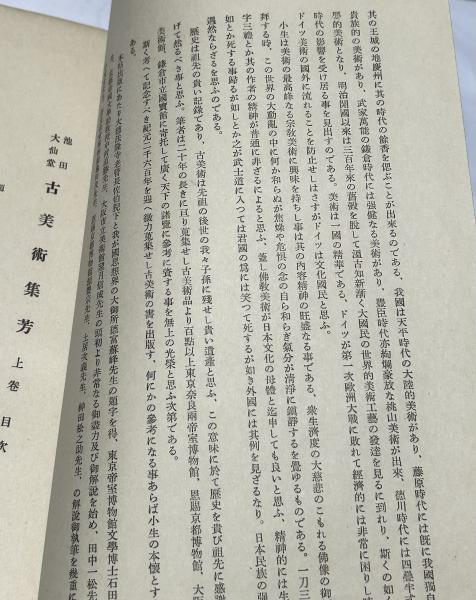 其の王城の地慶州に其の時代の餘香を偲ぶことが出來るのである、我國は天平時代の大陸的美術があり、藤原時代には旣に我國獨自
貴族的の美術があり、武家萬能の鎌倉時代には强健なる美術があり、豐臣時代亦絢爛豪放な桃山美術が出來、德川時代には四疊半式
的美術となり、明治開國以來は三百年來の舊殼を脫して溫古知新漸く大國民の世界的美術工藝の發達を見るに到れり、斯くの如
時代の影響を受け居る事を見出すのである。美術は一國の精華である、ドイツが第一次歐洲大戰に敗れて經濟的には非常に困りし時
ドイツ美術の國外に流れることを防止せしはさすがドイツは文化國民と思ふ。
小生は美術の最高峰なる宗敎美術に興味を持ちし事は其の內容精神の旺盛なる事である、衆生濟度の大慈悲のこもれる佛像の御
拜する時、この世界の大動亂の中に何か和らぬが焦燥や危惧の念の自ら和らぎ氣分が淸淨に鎭靜するを覺ゆるものである。一刀三
字三禮とか其の作者の精神が普通に非ざるによると思ふ、蓋し佛敎美術が日本文化の母體と迄申しても良いと思ふ、精神的には生
如とか死する事歸るが如しとか之が武士道に入つては君國の爲には笑つて死するが如き外國には其例を見ざるなり。日本民族の强
遇然ならざるを思ふのである。
歷史は祖先の貴い記錄であり、古美術は先祖の後世の我々子孫に殘せし貴い遺產と思ふ、この意味に於て歷史を貴び祖先に感謝
げて然るべき事と思ふ。筆者は二十年の長きに亘り蒐集せし古美術品より百點以上東京奈良兩帝室博物館、恩賜京都博物館、大阪
美術館、鎌倉市立國寶館に寄托して廣く天下の諸覽に參考に資する事を無上の光榮と思ふ次第である。
斯く考へて記念すべき紀元二千六百年を迎へ微力蒐集せし古美術の書を出版す、何にかの參考になる事あらば小生の本懷とす
ある。
本書出版に當たり大德法隆寺
我が國思想界の大御所德富蘇峰先生の題字を得、東京帝室博物館文學博士石田
大阪市立美術館望月信成先生の當初より非常なる御盡力及び御解說を始め、田中一松先
土居次義先生、神田松之助先生、の解說御執筆を幾重に
池田
大仙堂
古美術集芳 上卷 目次